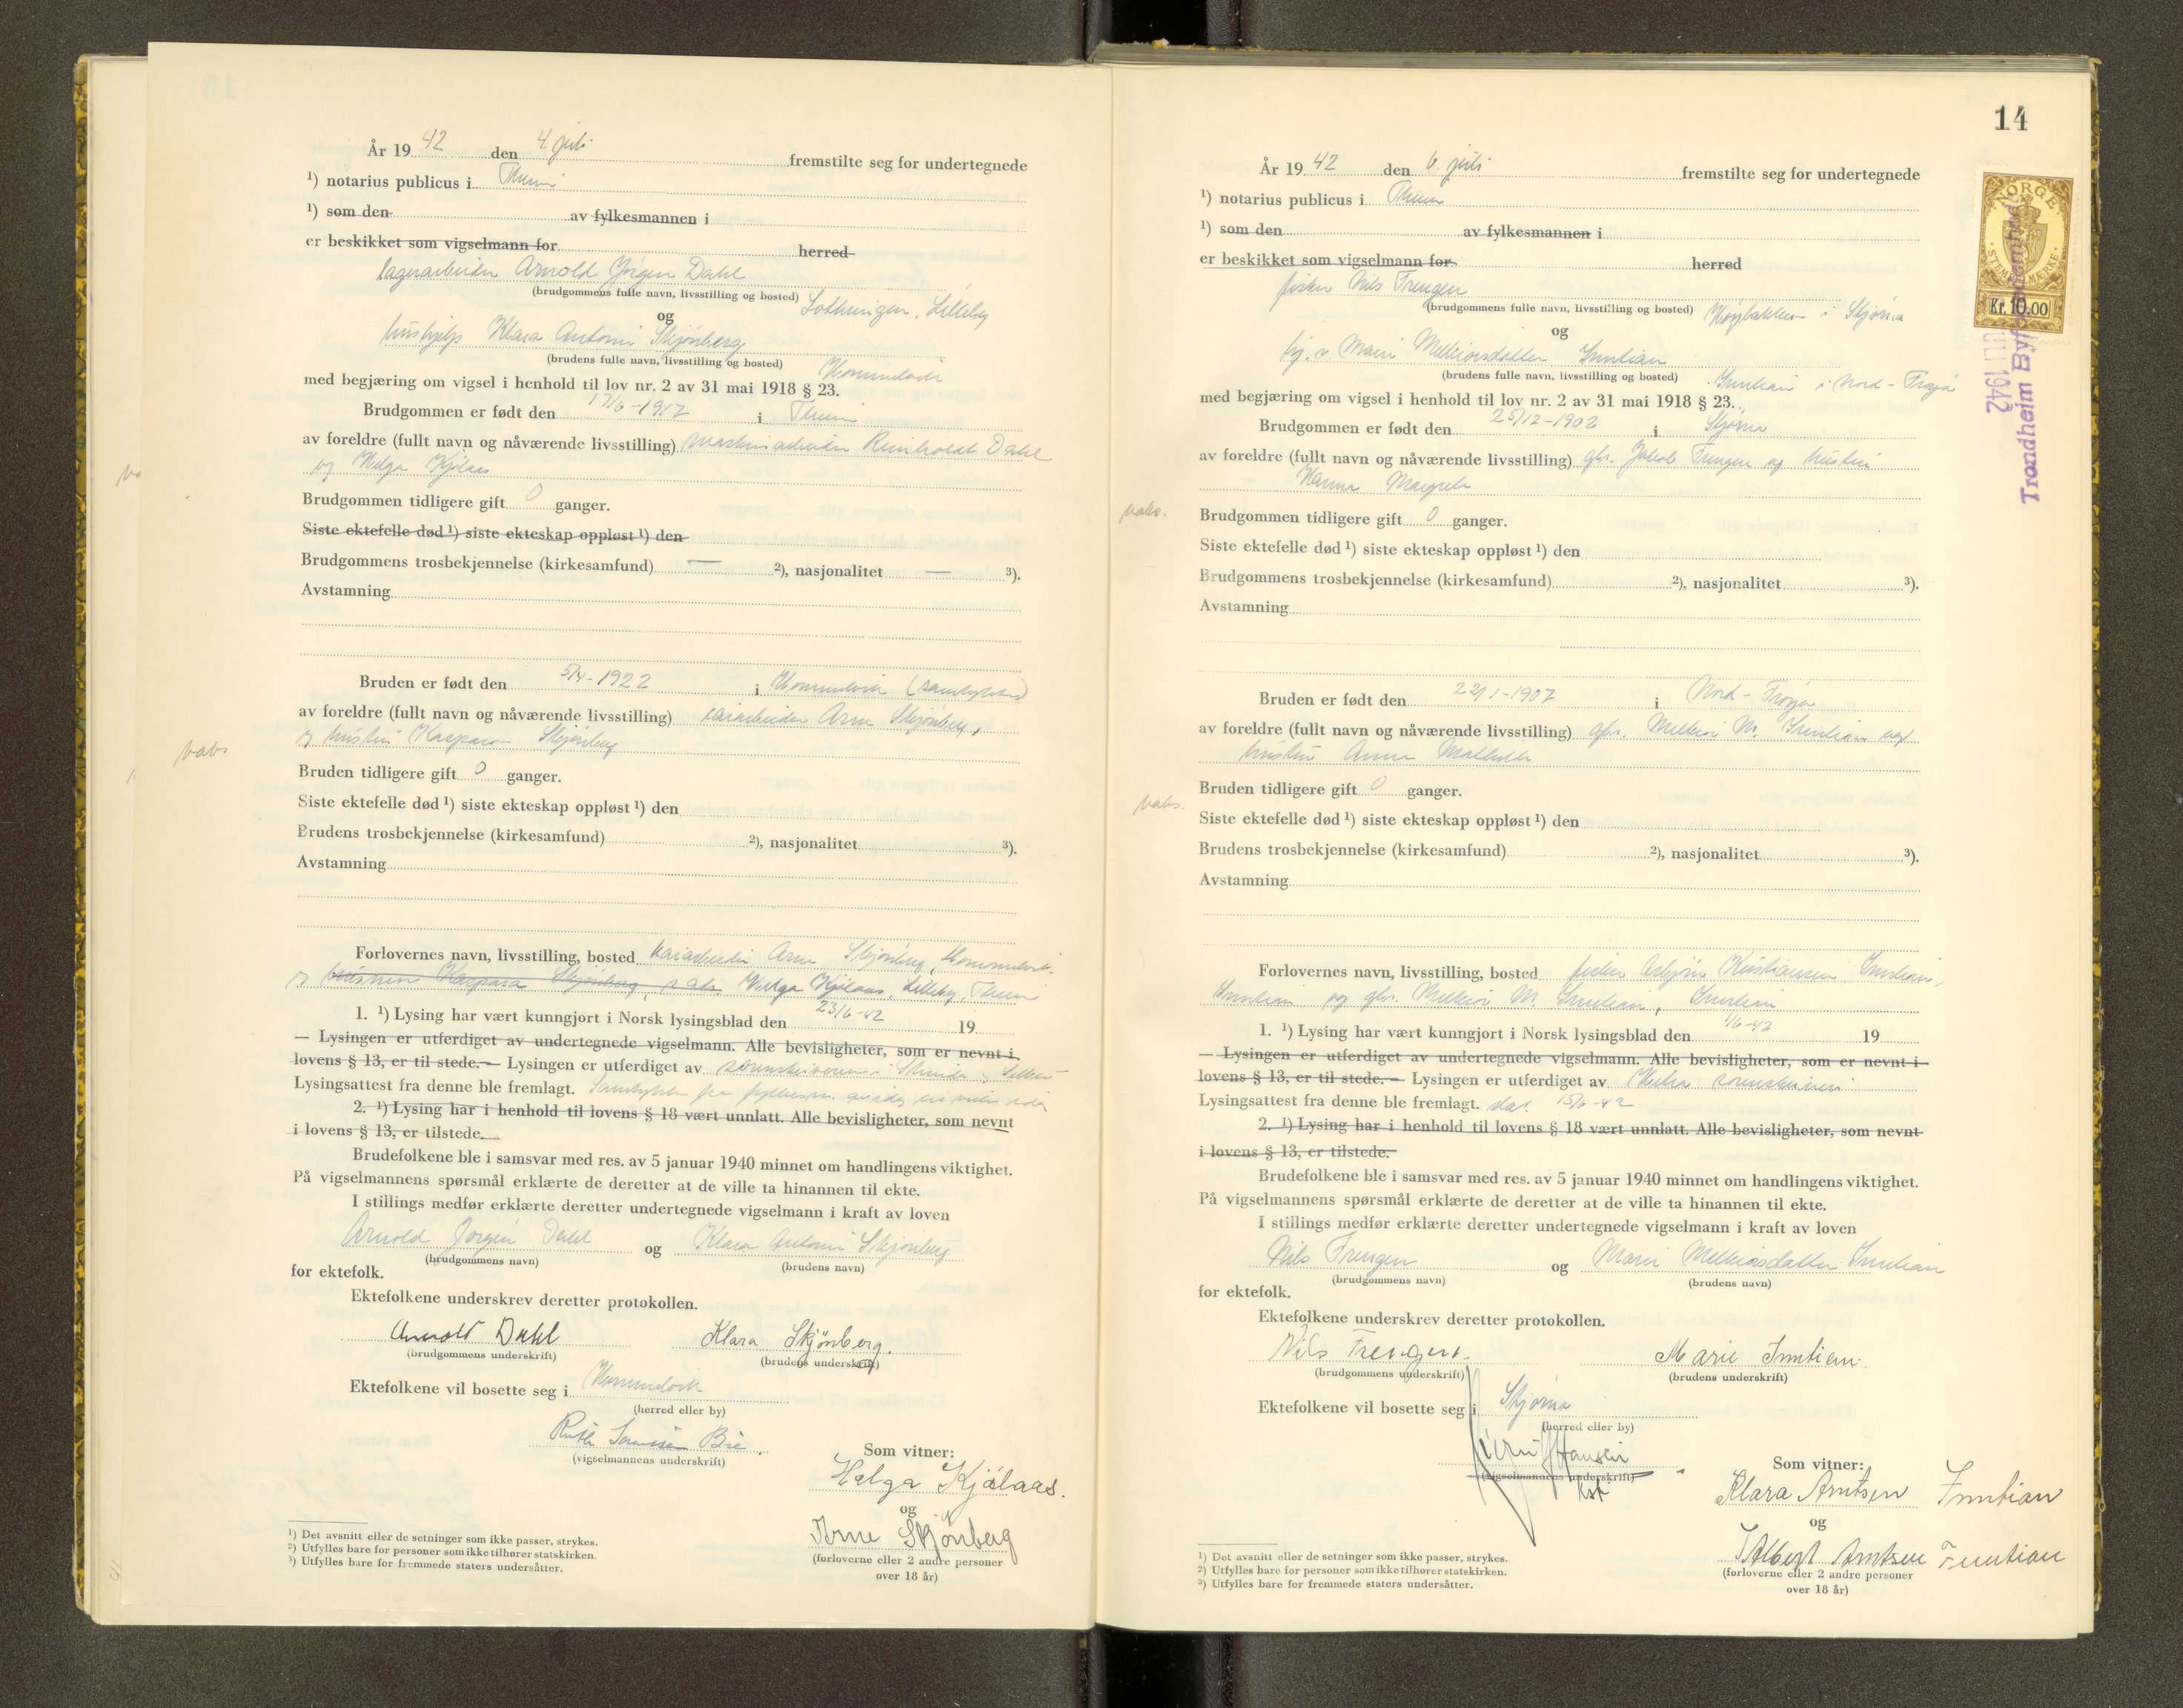 År 19 42 den 4. juli fremstilte seg for undertegnede
¹) notarius publicus i Thrm
¹) som den av fylkesmannen i
er beskikket som vigselmann for herred
lagerarbeider Arnold Jörgen Dahl
(brudgommens fulle navn, livsstilling og bosted) Lothringen, Lilleby
og
hushjelp Klara Antoni Skjönberg
(brudens fulle navn, livsstilling og bosted) Hommelvik
med begjæring om vigsel i henhold til lov nr. 2 av 31 mai 1918 § 23.
Brudgommen er født den 17/6-1917 i Thrm
av foreldre (fullt navn og nåværende livsstilling) maskinarbeider Reinholdt Dahl
og Helga Kjölaas
Brudgommen tidligere gift 0 ganger.
Siste ektefelle død ¹) siste ekteskap oppløst ¹) den
Brudgommens trosbekjennelse (kirkesamfund) — ²), nasjonalitet — ³).
Avstamning
Bruden er født den 5/4-1922 i Hommelvik (samtykke)
av foreldre (fullt navn og nåværende livsstilling) kaiarbeider Arne Skjönberg,
vabs
og hustru Kaspara Skjönberg
Bruden tidligere gift 0 ganger.
Siste ektefelle død ¹) siste ekteskap oppløst ¹) den
Brudens trosbekjennelse (kirkesamfund) ²), nasjonalitet ³).
Avstamning
Forlovernes navn, livsstilling, bosted kaiarbeider Arne Skjönberg, Hommelvik
og hustruen Kaspara Skjönberg, Helga Kjölaas, Lilleby, Thrm
1. ¹) Lysing har vært kunngjort i Norsk lysingsblad den 23/6-42 19
— Lysingen er utferdiget av undertegnede vigselmann. Alle bevisligheter, som er nevnt i
lovens § 13, er til stede. — Lysingen er utferdiget av sorenskriveren i Strinda og Selbu
Lysingsattest fra denne ble fremlagt. Samtykke fra fylkesm.
2. ¹) Lysing har i henhold til lovens § 18 vært unnlatt. Alle bevisligheter, som nevnt
i lovens § 13, er tilstede.
Brudefolkene ble i samsvar med res. av 5 januar 1940 minnet om handlingens viktighet.
På vigselmannens spørsmål erklærte de deretter at de ville ta hinannen til ekte.
I stillings medfør erklærte deretter undertegnede vigselmann i kraft av loven
Arnold Jörgen Dahl og Klara Antoni Skjönberg
(brudgommens navn) (brudens navn)
for ektefolk.
Ektefolkene underskrev deretter protokollen.
Arnold Dahl Klara Skjönberg.
(brudgommens underskrift) (brudens underskrift)
Ektefolkene vil bosette seg i Hommelvik
(herred eller by)
Ruth Bie
(vigselmannens underskrift)
Som vitner:
Helga Kjölaas.
og
Arne Skjönberg
(forloverne eller 2 andre personer
over 18 år)
¹) Det avsnitt eller de setninger som ikke passer, strykes.
²) Utfylles bare for personer som ikke tilhører statskirken.
³) Utfylles bare for fremmede staters undersåtter.
14
NORGE
STEMPELMERKE
Kr. 10.00
Trondheim Byfogdembede
JULI 1942
År 19 42 den 6. juli fremstilte seg for undertegnede
¹) notarius publicus i Thrm
¹) som den av fylkesmannen i
er beskikket som vigselmann for herred
fisker Nils Frengen
(brudgommens fulle navn, livsstilling og bosted) Høybakken i Stjørna
og
Marie Melkiorsdatter Inntian
(brudens fulle navn, livsstilling og bosted) Inntian i Nord-Frøya
med begjæring om vigsel i henhold til lov nr. 2 av 31 mai 1918 § 23.
Brudgommen er født den 25/12-1902 i Stjørna
av foreldre (fullt navn og nåværende livsstilling) gbr. Jakob Frengen og hustru
Hanna Margrete
vabs.
Brudgommen tidligere gift 0 ganger.
Siste ektefelle død ¹) siste ekteskap oppløst ¹) den
Brudgommens trosbekjennelse (kirkesamfund) ²), nasjonalitet ³).
Avstamning
Bruden er født den 22/1-1907 i Nord-Frøya
av foreldre (fullt navn og nåværende livsstilling) gbr. Melkior M. Inntian og
hustru Anna Mathilde
Bruden tidligere gift 0 ganger.
vabs.
Siste ektefelle død ¹) siste ekteskap oppløst ¹) den
Brudens trosbekjennelse (kirkesamfund) ²), nasjonalitet ³).
Avstamning
Forlovernes navn, livsstilling, bosted fisker Asbjörn Kristiansen Inntian,
Inntian og gbr. Melkior M. Inntian, Inntian
1. ¹) Lysing har vært kunngjort i Norsk lysingsblad den 4/6-42 19
— Lysingen er utferdiget av undertegnede vigselmann. Alle bevisligheter, som er nevnt i
lovens § 13, er til stede. — Lysingen er utferdiget av Hitra sorenskriveri
Lysingsattest fra denne ble fremlagt. dat. 15/6-42
2. ¹) Lysing har i henhold til lovens § 18 vært unnlatt. Alle bevisligheter, som nevnt
i lovens § 13, er tilstede.
Brudefolkene ble i samsvar med res. av 5 januar 1940 minnet om handlingens viktighet.
På vigselmannens spørsmål erklærte de deretter at de ville ta hinannen til ekte.
I stillings medfør erklærte deretter undertegnede vigselmann i kraft av loven
Nils Frengen og Marie Melkiorsdatter Inntian
(brudgommens navn) (brudens navn)
for ektefolk.
Ektefolkene underskrev deretter protokollen.
Nils Frengen. Marie Inntian.
(brudgommens underskrift) (brudens underskrift)
Ektefolkene vil bosette seg i Stjørna
(herred eller by)
Hansen
(vigselmannens underskrift)
kst
Som vitner:
Klara Arntsen Inntian
og
Albert Arntsen Inntian
(forloverne eller 2 andre personer
over 18 år)
¹) Det avsnitt eller de setninger som ikke passer, strykes.
²) Utfylles bare for personer som ikke tilhører statskirken.
³) Utfylles bare for fremmede staters undersåtter.